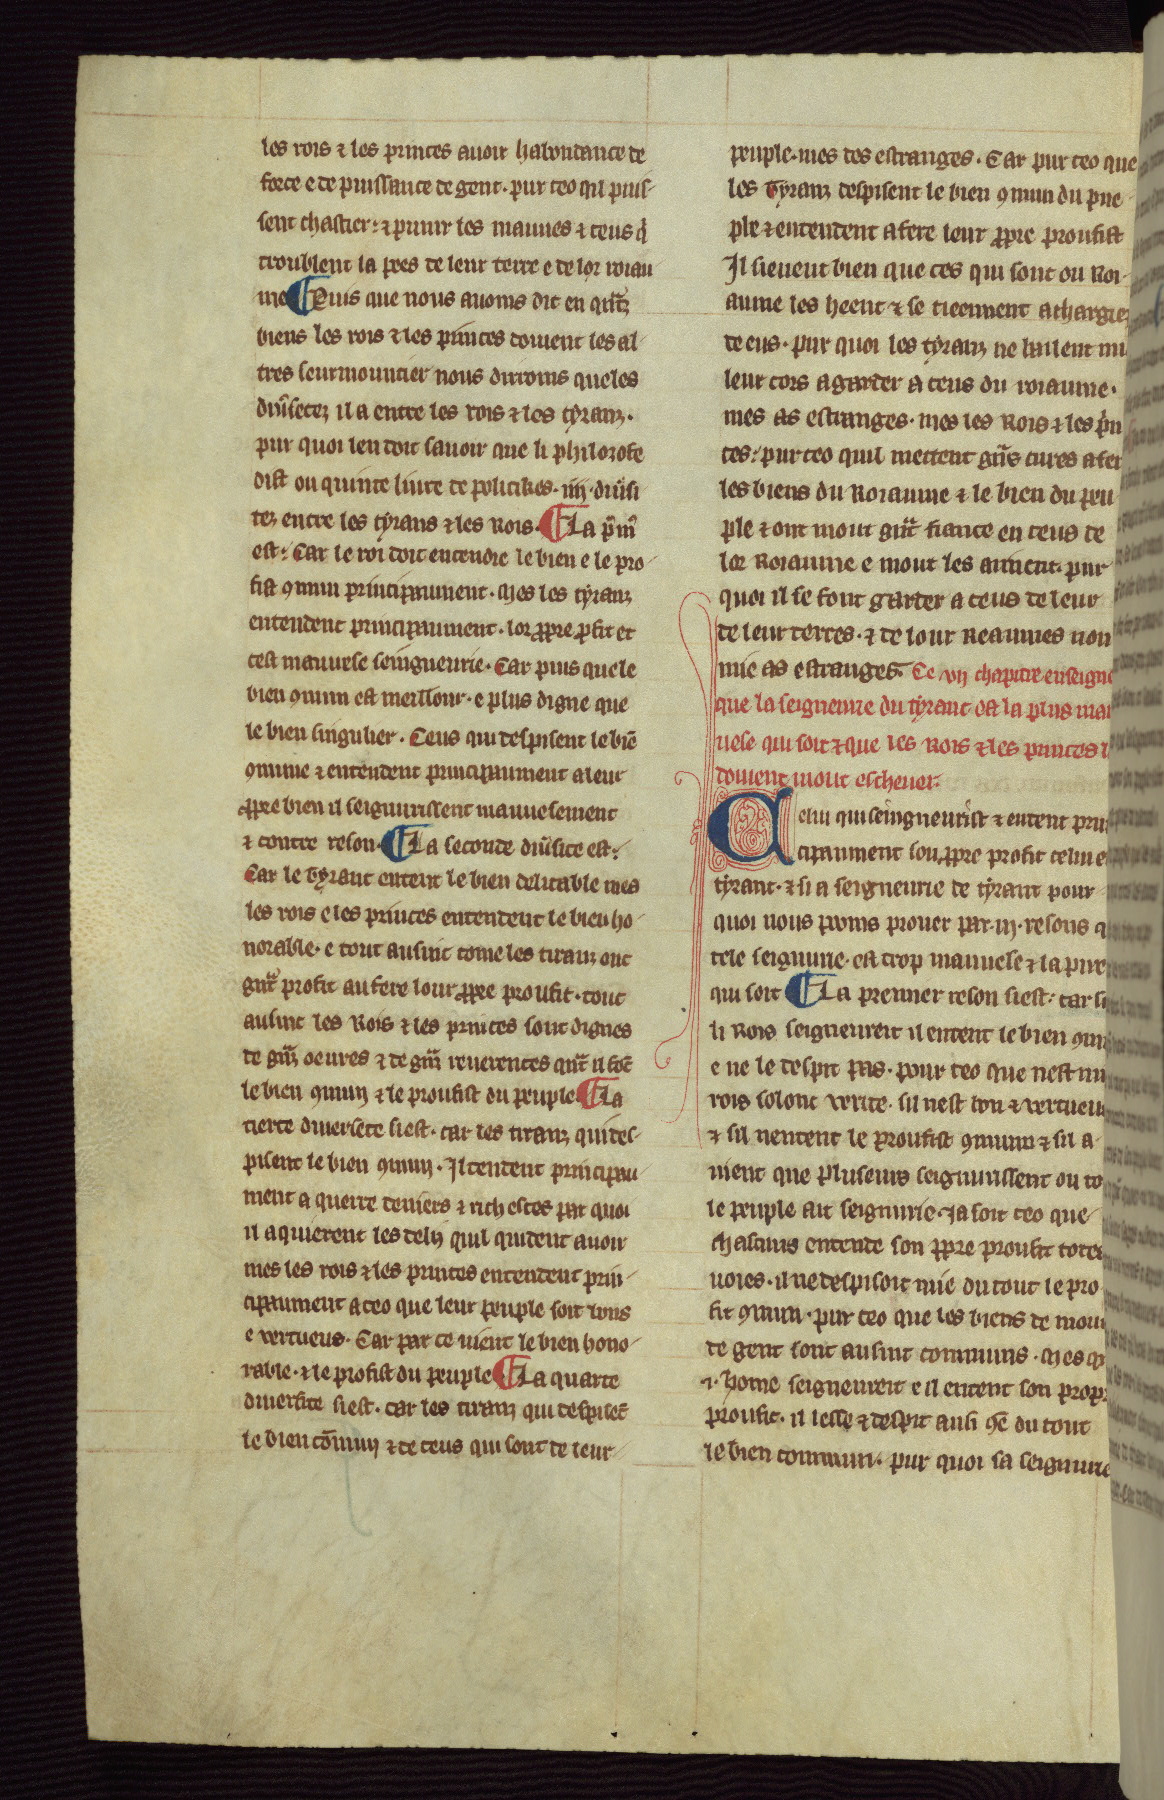 les rois ⁊ les princes auoir habondance de
force e de puissance de gent · pur ceo qil puis-
sent chastier: ⁊ punir les mauues ⁊ ceus q̾
troublent la pees de leur terre e de lor roiau
me ¶ Puis que nous auoms dit en qu̾tz
biens les rois ⁊ les princes doiuent les al-
tres seurmounter nous dirroms queles
diũsetez il a entre les rois ⁊ les tyranz ·
pur quoi len doit sauoir que li philozofe
dist ou quinte liure de politikes · iiij · diũsi
tez entre les tyrans ⁊ les Rois · ¶ La p̾m̾
est: Car le roi doit entendre le bien e le pro-
fist ꝯmun principaument · Mes les tyranz
entendent principaument · lor ꝓpre ꝓfit et
cest mauuese seingneurie · Car puis que le
bien ꝯmun est meillour · e plus digne que
le bien singulier · Ceus qui despisent le biē
ꝯmune ⁊ entendent principaument a leur
ꝓpre bien il seignurissent mauuesement
⁊ contre reson · ¶ La seconde diũsite est:
Car le tyrant entent le bien delitable mes
les rois e les princes entendent le bien ho-
norable · e tout ausint come les tiranz ont
gñt profit au fere lour ꝓpre proufit · tout
ausint les Rois ⁊ les princes sont dignes
de gñz oeures ⁊ de gñz reuerences qñt il fōt
le bien ꝯmun ⁊ le proufist du peuple ¶ La
tierce diuersete siest · car les tiranz qui des-
pisent le bien ꝯmun · Il tendent principau-
ment a querre deniers ⁊ richesces par quoi
il aquierent les deliz quil quident auoir
mes les rois ⁊ les princes entendent prin-
cipaument a ceo que leur peuple soit bons
e vertueus · Car par ce uient le bien hono-
rable · ⁊ le profist du peuple ¶ La quarte
diuersite siest · car les tiranz qui despisēt
le bien cōmun ⁊ de ceus qui sont de leur-
peuple · mes des estranges · Car pur ceo que
les tyranz despisent le bien ꝯmun du pue-
ple ⁊ entendent a fere leur ꝓpre proufist
Il sieuent bien que ces qui sont ou Roi-
aume les heent ⁊ se tieennent a chargiez
de eus · pur quoi les tyranz ne baillent mi
leur cors a garder a ceus du roiaume ·
mes as estranges · mes les Rois ⁊ les p̾n
ces: pur ceo quil mettent gñs cures a fer
les biens du Roiaume ⁊ le bien du peu
ple ⁊ ont mout gñt fiance en ceus de
lor Roiaume e mout les aiment · pur-
quoi il se font garder a ceus de leur
de leur terres · ⁊ de lour Reaumes non
mie as estranges Ce vij chapitre enseigne
que la seigneurie du tyrant est la plus mau
uese qui soit ⁊ que les Rois ⁊ les princes l
doiuent mout escheuer ·
Celui qui seingneurist ⁊ entent prin
cipaument son ꝓpre profit celui e
tyrant · ⁊ si a seigneurie de tyrant pour-
quoi nous poms prouer par · iij · resons q
tele seignurie · est trop mauuese ⁊ la pire
qui soit ¶ La premier reson siest: car si
li Rois seigneureit il entent le bien ꝯmu
e ne le despit pas · pour ceo que nest mi
rois solonc verite · sil nest bon ⁊ vertueu
⁊ sil nentent le proufist ꝯmun ⁊ sil a-
uient que pluseurs seignurissent ou to
le peuple ait seignurie · Ja soit ceo que
chascuns entende son ꝓpre proufit totes
uoies · il ne despisoit mie du tout le pro
fit ꝯmun · pur ceo que les biens de mou
de gent sont ausint communs · Mes q̾
·i· home seigneureit e il entent son propre
proufit · il lesse ⁊ despit ausi ꝯē du tout
le bien commun · pur quoi sa seignurie